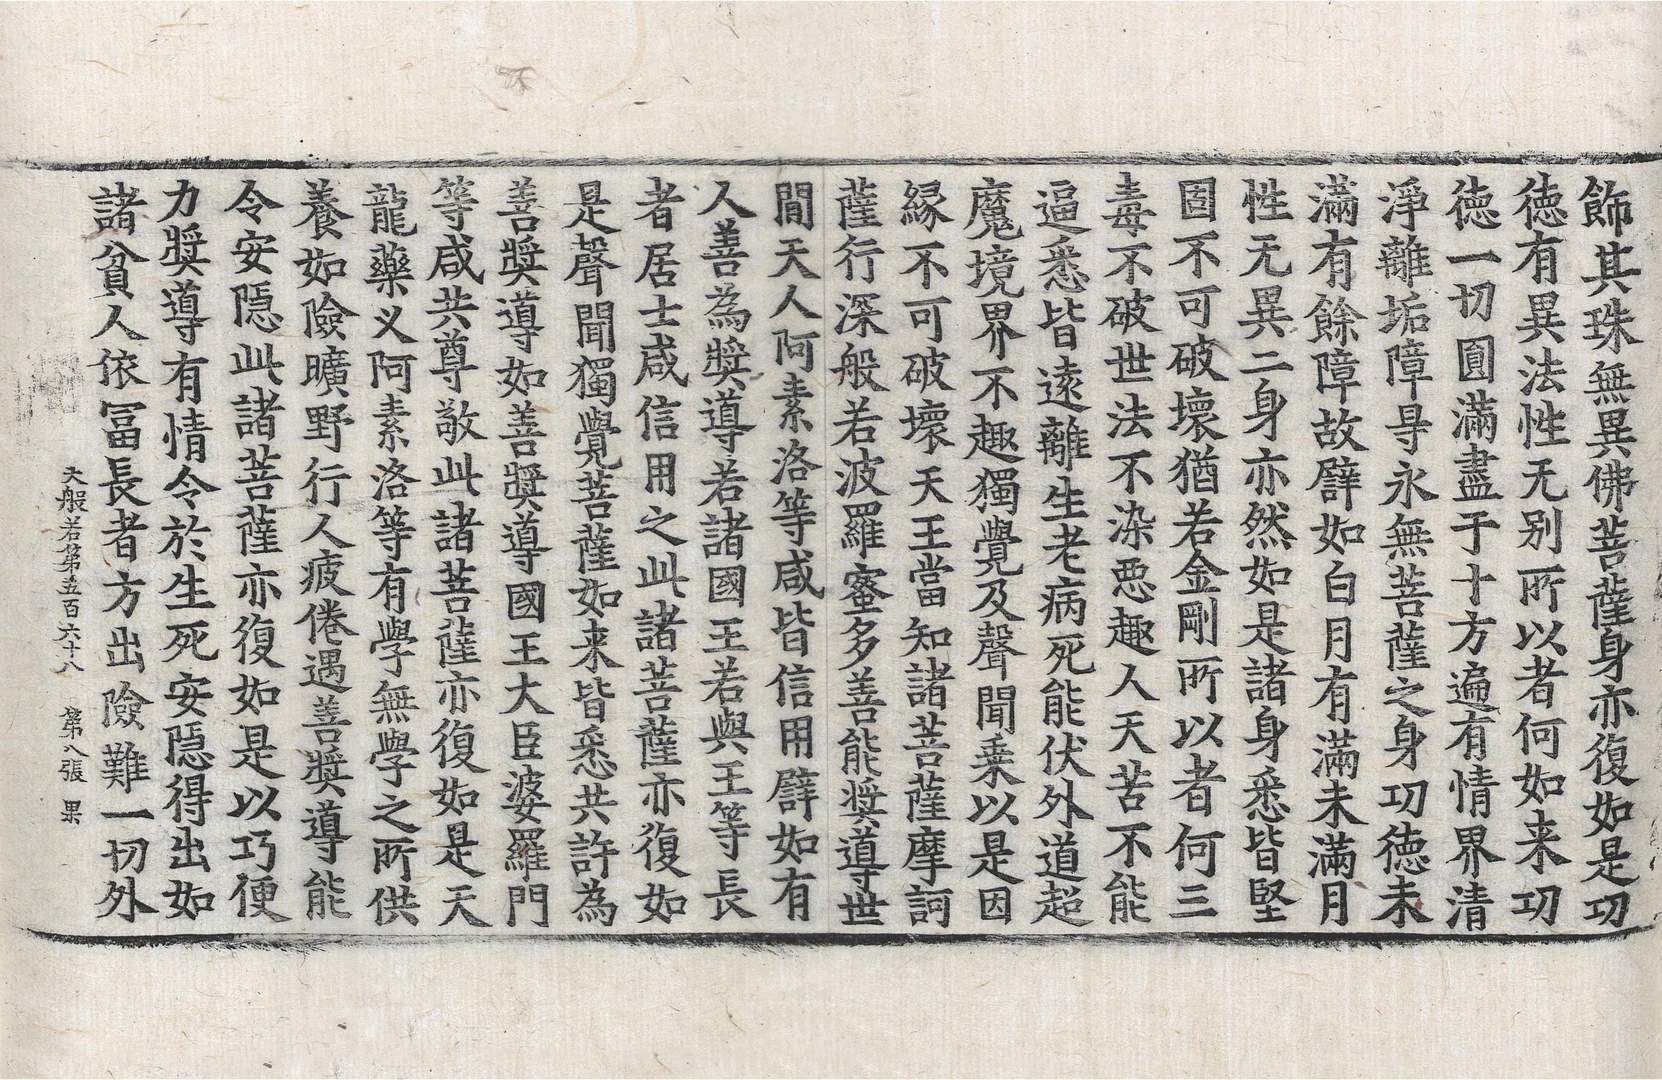 飾其珠無異佛菩薩身亦復如是功
徳有異法性无别所以者何如来功
徳一切圓滿盡于十方遍有情界清
淨離垢障㝵永無菩薩之身功徳未
滿有餘障故譬如白月有滿未滿月
性无異二身亦然如是諸身悉皆堅
固不可破壞猶若金剛所以者何三
毒不破世法不染惡趣人天苦不能
逼悉皆遠離生老病死能伏外道超
魔境界不趣獨覺及聲聞乗以是因
縁不可破壞天王當知諸菩薩摩訶
薩行深般若波羅蜜多善能奬導世
間天人阿素洛等咸皆信用譬如有
人善為奬導若諸國王若與王等長
者居士咸信用之此諸菩薩亦復如
是聲聞獨覺菩薩如来皆悉共許為
善奬導如善奬導國王大臣婆羅門
等咸共尊敬此諸菩薩亦復如是天
龍藥义阿素洛等有學無學之所供
養如險曠野行人疲倦遇善奬導能
令安隠此諸菩薩亦復如是以巧便
力奬導有情令於生死安隠得出如
諸貧人依冨長者方出險難一切外
大般若第五百六十八 第八張 果